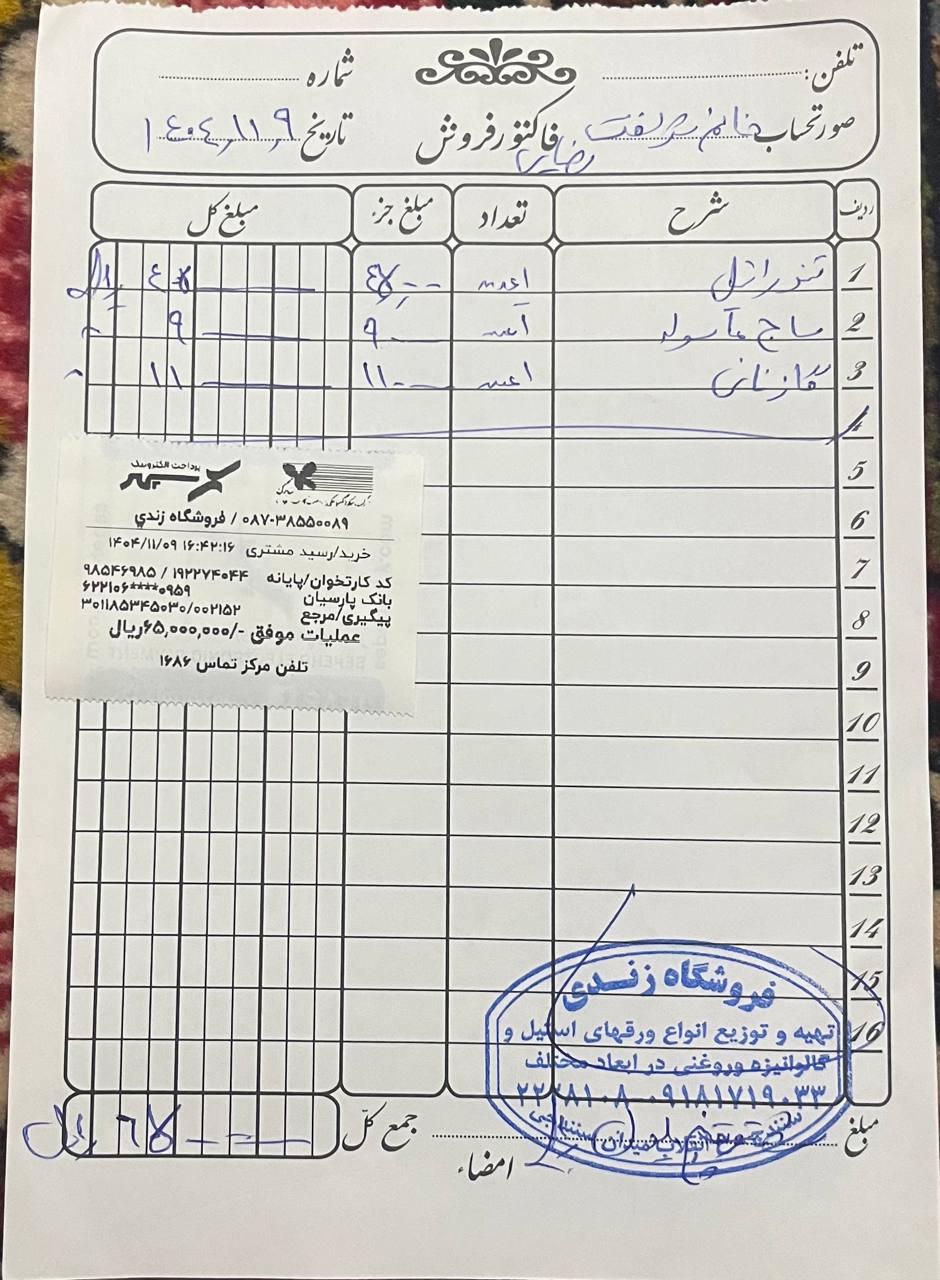 تلفن: شماره
صورتحساب خانم فاکتور فروش تاریخ ۱۴۰۴/۱۱/۹
رضایی
ردیف شرح تعداد مبلغ جزء مبلغ کل
1 ۱عدد ۴۵۰۰ ۴۵ ریال
2 ساج ۱عدد ۹ ۹
3 ۱عدد ۱۱۰۰ ۱۱
4
5
6
7
8
9
10
11
12
13
14
15
16
پرداخت الکترونیک سپهر
۰۸۷-۳۸۵۵۰۰۸۹ / فروشگاه زندي
خرید/رسید مشتری ۱۶:۴۲:۱۶ ۱۴۰۴/۱۱/۰۹
کد کارتخوان/پایانه ۱۹۲۲۷۴۰۴۴ / ۹۸۵۴۶۹۸۵
بانک پارسیان ۶۲۲۱۰۶****۰۹۵۹
پیگیری/مرجع ۳۰۱۱۸۵۳۴۵۰۳۰/۰۰۲۱۵۲
عملیات موفق -/۶۵,۰۰۰,۰۰۰ریال
تلفن مرکز تماس ۱۶۸۶
فروشگاه زنـدی
تهیه و توزیع انواع ورقهای استیل و
گالوانیزه وروغنی در ابعاد مختلف
۲۲۲۸۱۰۸ ۰۹۱۸۱۷۱۹۰۳۳
مبلغ جمع کل ۶۵ ریال
امضاء